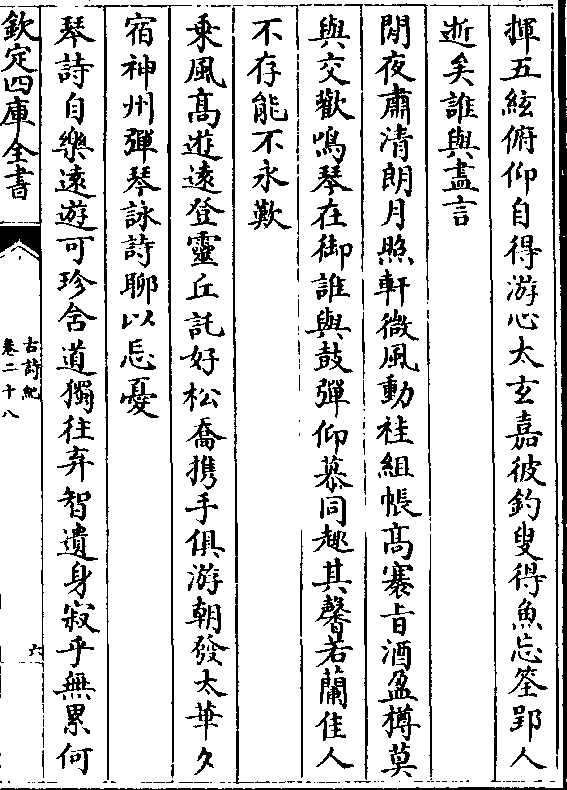 揮五絃俯仰自得游心太玄嘉彼釣叟得魚忘筌郢人
逝矣誰與盡言
閒夜肅清朗月照軒微風動袿組帳高褰旨酒盈樽莫
與交歡鳴琴在御誰與鼓彈仰慕同趣其馨若蘭佳人
不存能不永歎
乘風高逰遠登靈丘託好松喬携手俱游朝發太華夕
宿神州彈琴詠詩聊以忘憂
琴詩自樂遠遊可珍舍道獨往弃智遺身寂乎無累何
欽定四庫全書
古詩紀
卷二十八
六